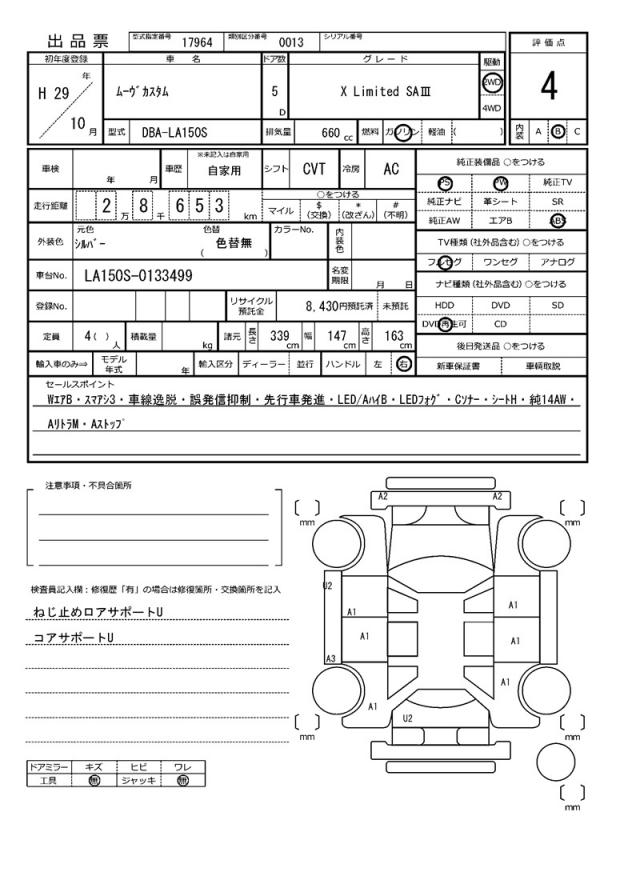 出品票 型式指定番号 17964 類別区分番号 0013 シリアル番号
初年度登録 車名 ドア数 グレード 駆動 評価点
H 29 年 10 月 ムーヴカスタム 5 D X Limited SAⅢ 2WD 4WD 4
型式 DBA-LA150S 排気量 660 cc 燃料 ガソリン 軽油 ( ) 内装 A B C
車検 年 月 車歴 ※未記入は自家用 自家用 シフト CVT 冷房 AC
走行距離 2 万 8 千 6 5 3 km ○をつける マイル $ (交換) * (改ざん) # (不明)
外装色 元色 シルバー 色替 ( 色替無 ) カラーNo. 内装色
車台No. LA150S-0133499 名変期限 月 日
登録No. リサイクル預託金 8,430円預託済 未預託
定員 4( ) 人 積載量 kg 諸元 長さ 339 cm 幅 147 cm 高さ 163 cm
輸入車のみ⇒ モデル年式 年 輸入区分 ディーラー 並行 ハンドル 左 右
純正装備品 ○をつける
PS PW 純正TV
純正ナビ 革シート SR
純正AW エアB ABS
TV種類 (社外品含む) ○をつける
フルセグ ワンセグ アナログ
ナビ種類 (社外品含む) ○をつける
HDD DVD SD
DVD再生可 CD
後日発送品 ○をつける
新車保証書 車輌取説
セールスポイント
WエアB・スマアシ3・車線逸脱・誤発信抑制・先行車発進・LED/AハイB・LEDフォグ・Cソナー・シートH・純14AW・
AリトラM・Aストップ
注意事項・不具合箇所
検査員記入欄:修復歴「有」の場合は修復箇所・交換箇所を記入
ねじ止めロアサポートU
コアサポートU
ドアミラー キズ ヒビ ワレ
工具 無 ジャッキ 無
A2 A2
mm mm
U2
A1 A1
A1 A1
A3
A1 A1
U2
mm mm
mm